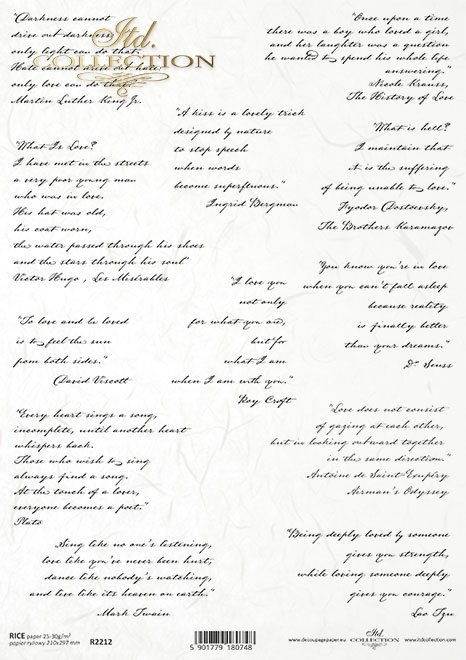 "Darkness cannot
drive out darkness,
only light can do that.
Hate cannot drive out hate,
only love can do that."
Martin Luther King Jr.
Itd.
COLLECTION
"Once upon a time
there was a boy who loved a girl,
and her laughter was a question
he wanted to spend his whole life
answering."
Nicole Krauss,
The History of Love
"A kiss is a lovely trick
designed by nature
to stop speech
when words
become superfluous."
Ingrid Bergman
"What is hell?
I maintain that
it is the suffering
of being unable to love."
Fyodor Dostoevsky,
The Brothers Karamazov
"What Is Love?
I have met in the streets
a very poor young man
who was in love.
His hat was old,
his coat worn,
the water passed through his shoes
and the stars through his soul"
Victor Hugo , Les Misérables
"You know you're in love
when you can't fall asleep
because reality
is finally better
than your dreams."
Dr. Seuss
"I love you
not only
for what you are,
but for
what I am
when I am with you."
Roy Croft
"To love and be loved
is to feel the sun
from both sides."
David Viscott
"Love does not consist
of gazing at each other,
but in looking outward together
in the same direction."
Antoine de Saint-Exupéry
Airman's Odyssey
"Every heart sings a song,
incomplete, until another heart
whispers back.
Those who wish to sing
always find a song.
At the touch of a lover,
everyone becomes a poet."
Plato
Sing like no one's listening,
love like you've never been hurt,
dance like nobody's watching,
and live like its heaven on earth."
Mark Twain
"Being deeply loved by someone
gives you strength,
while loving someone deeply
gives you courage."
Lao Tzu
RICE paper 25-30g/m²
papier ryżowy 210x297 mm
R2212
5 901779 180748
www.decoupagepaper.eu
Itd.
COLLECTION
www.itdcollection.com